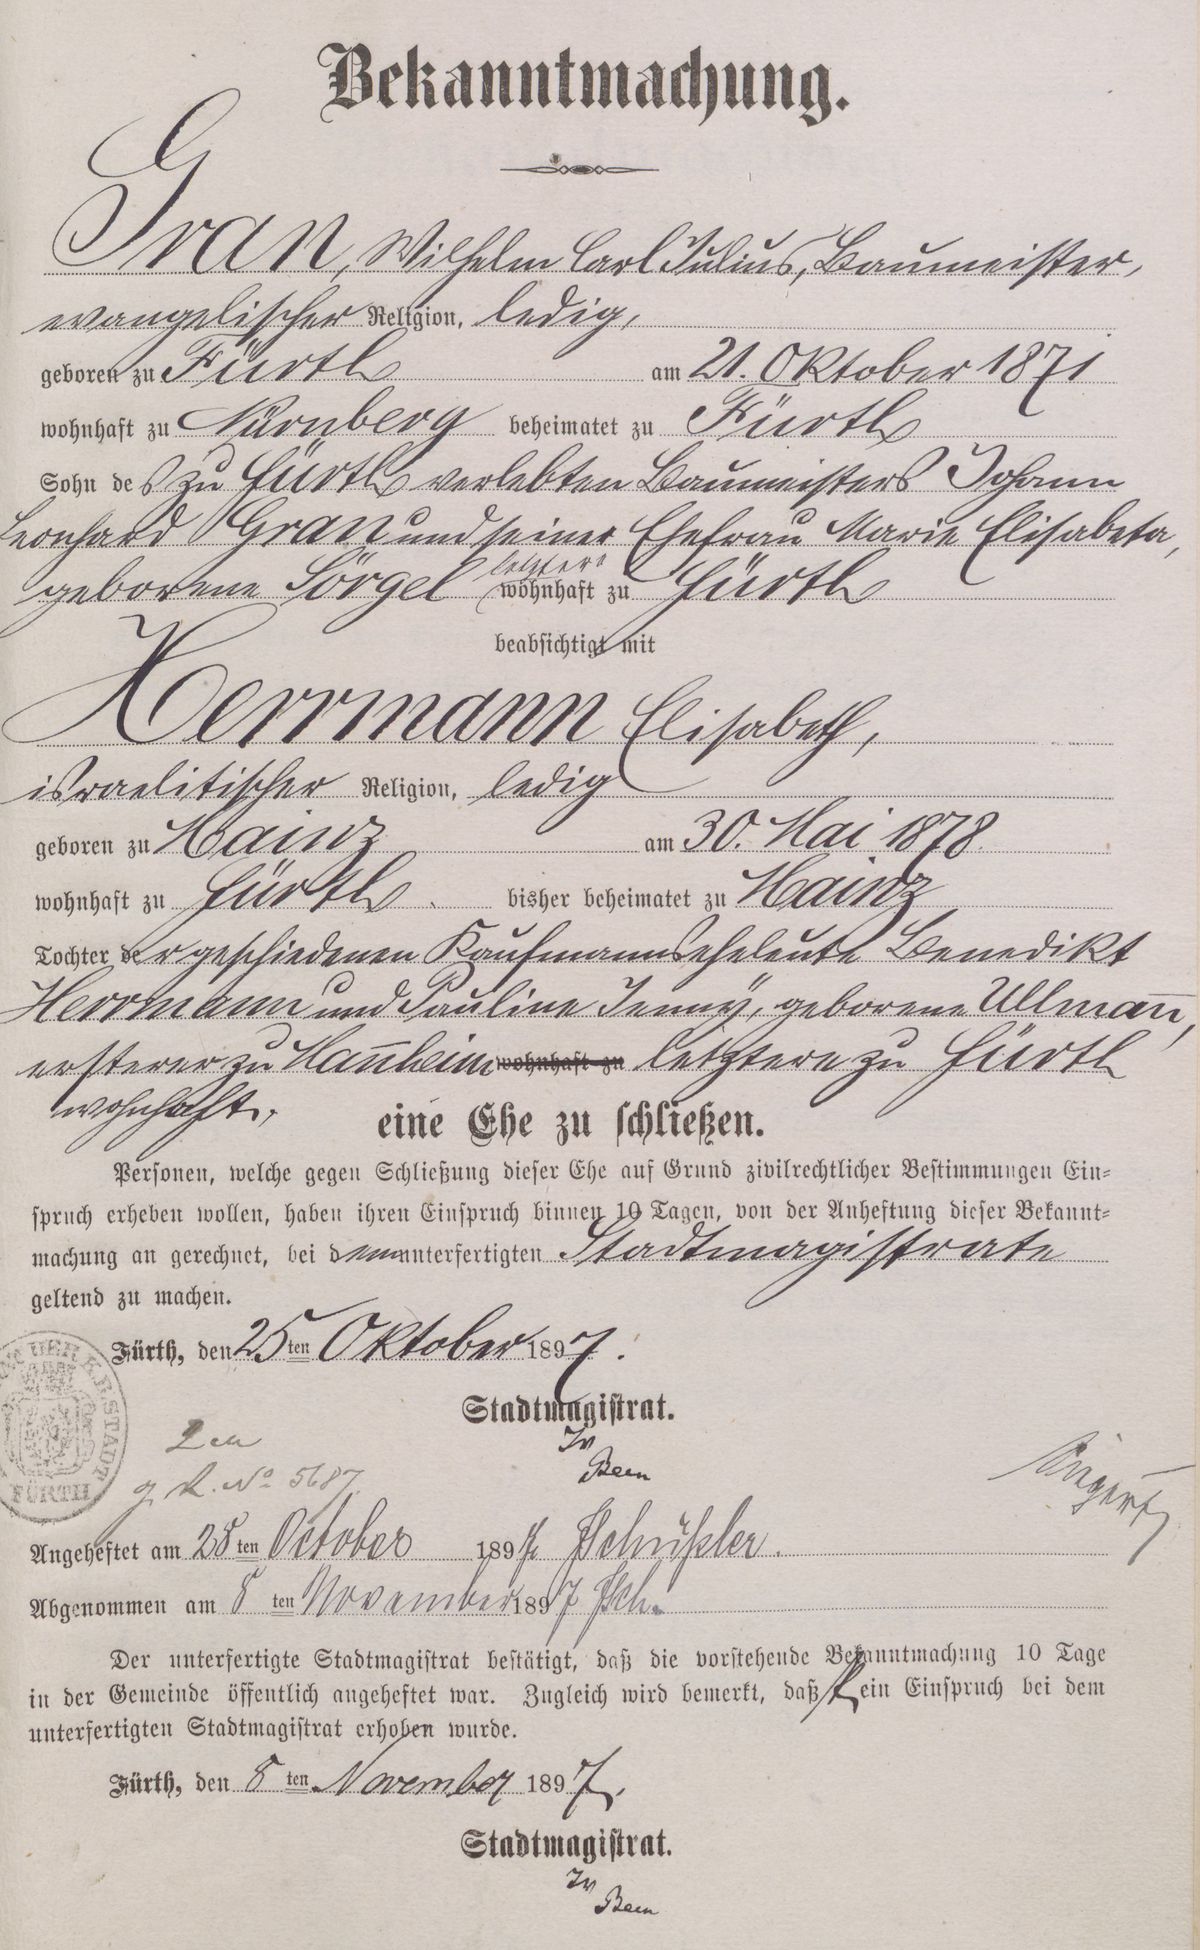 Bekanntmachung.
Gran, Wilhelm Carl Julius, Baumeister,
evangelischer Religion, ledig,
geboren zu Fürth am 21. Oktober 1871
wohnhaft zu Nürnberg beheimatet zu Fürth
Sohn des zu Fürth verlebten Baumeisters Johann
Leonhard Gran und seiner Ehefrau Marie Elisabeta,
geborene Sörgel letztere wohnhaft zu Fürth
beabsichtigt mit
Herrmann Elisabeth,
israelitischer Religion, ledig
geboren zu Mainz am 30. Mai 1878.
wohnhaft zu Fürth. bisher beheimatet zu Mainz
Tochter der geschiedenen Kaufmannseheleute Benedikt
Herrmann und Pauline Jenny, geborene Ullmañ,
ersterer zu Mañheim wohnhaft zu letztere zu Fürth
wohnhaft,
eine Ehe zu schließen.
Personen, welche gegen Schließung dieser Ehe auf Grund zivilrechtlicher Bestimmungen Ein-
spruch erheben wollen, haben ihren Einspruch binnen 10 Tagen, von der Anheftung dieser Bekannt-
machung an gerechnet, bei dem unterfertigten Stadtmagistrate
geltend zu machen.
Fürth, den 25ten Oktober 1897.
Stadtmagistrat.
STADT FÜRTH
No 5687
Angeheftet am 28ten October 1897 Schüßler.
Abgenommen am 8ten November 1897 Sch.
Der unterfertigte Stadtmagistrat bestätigt, daß die vorstehende Bekanntmachung 10 Tage
in der Gemeinde öffentlich angeheftet war. Zugleich wird bemerkt, daß kein Einspruch bei dem
unterfertigten Stadtmagistrat erhoben wurde.
Fürth, den 8ten November 1897.
Stadtmagistrat.